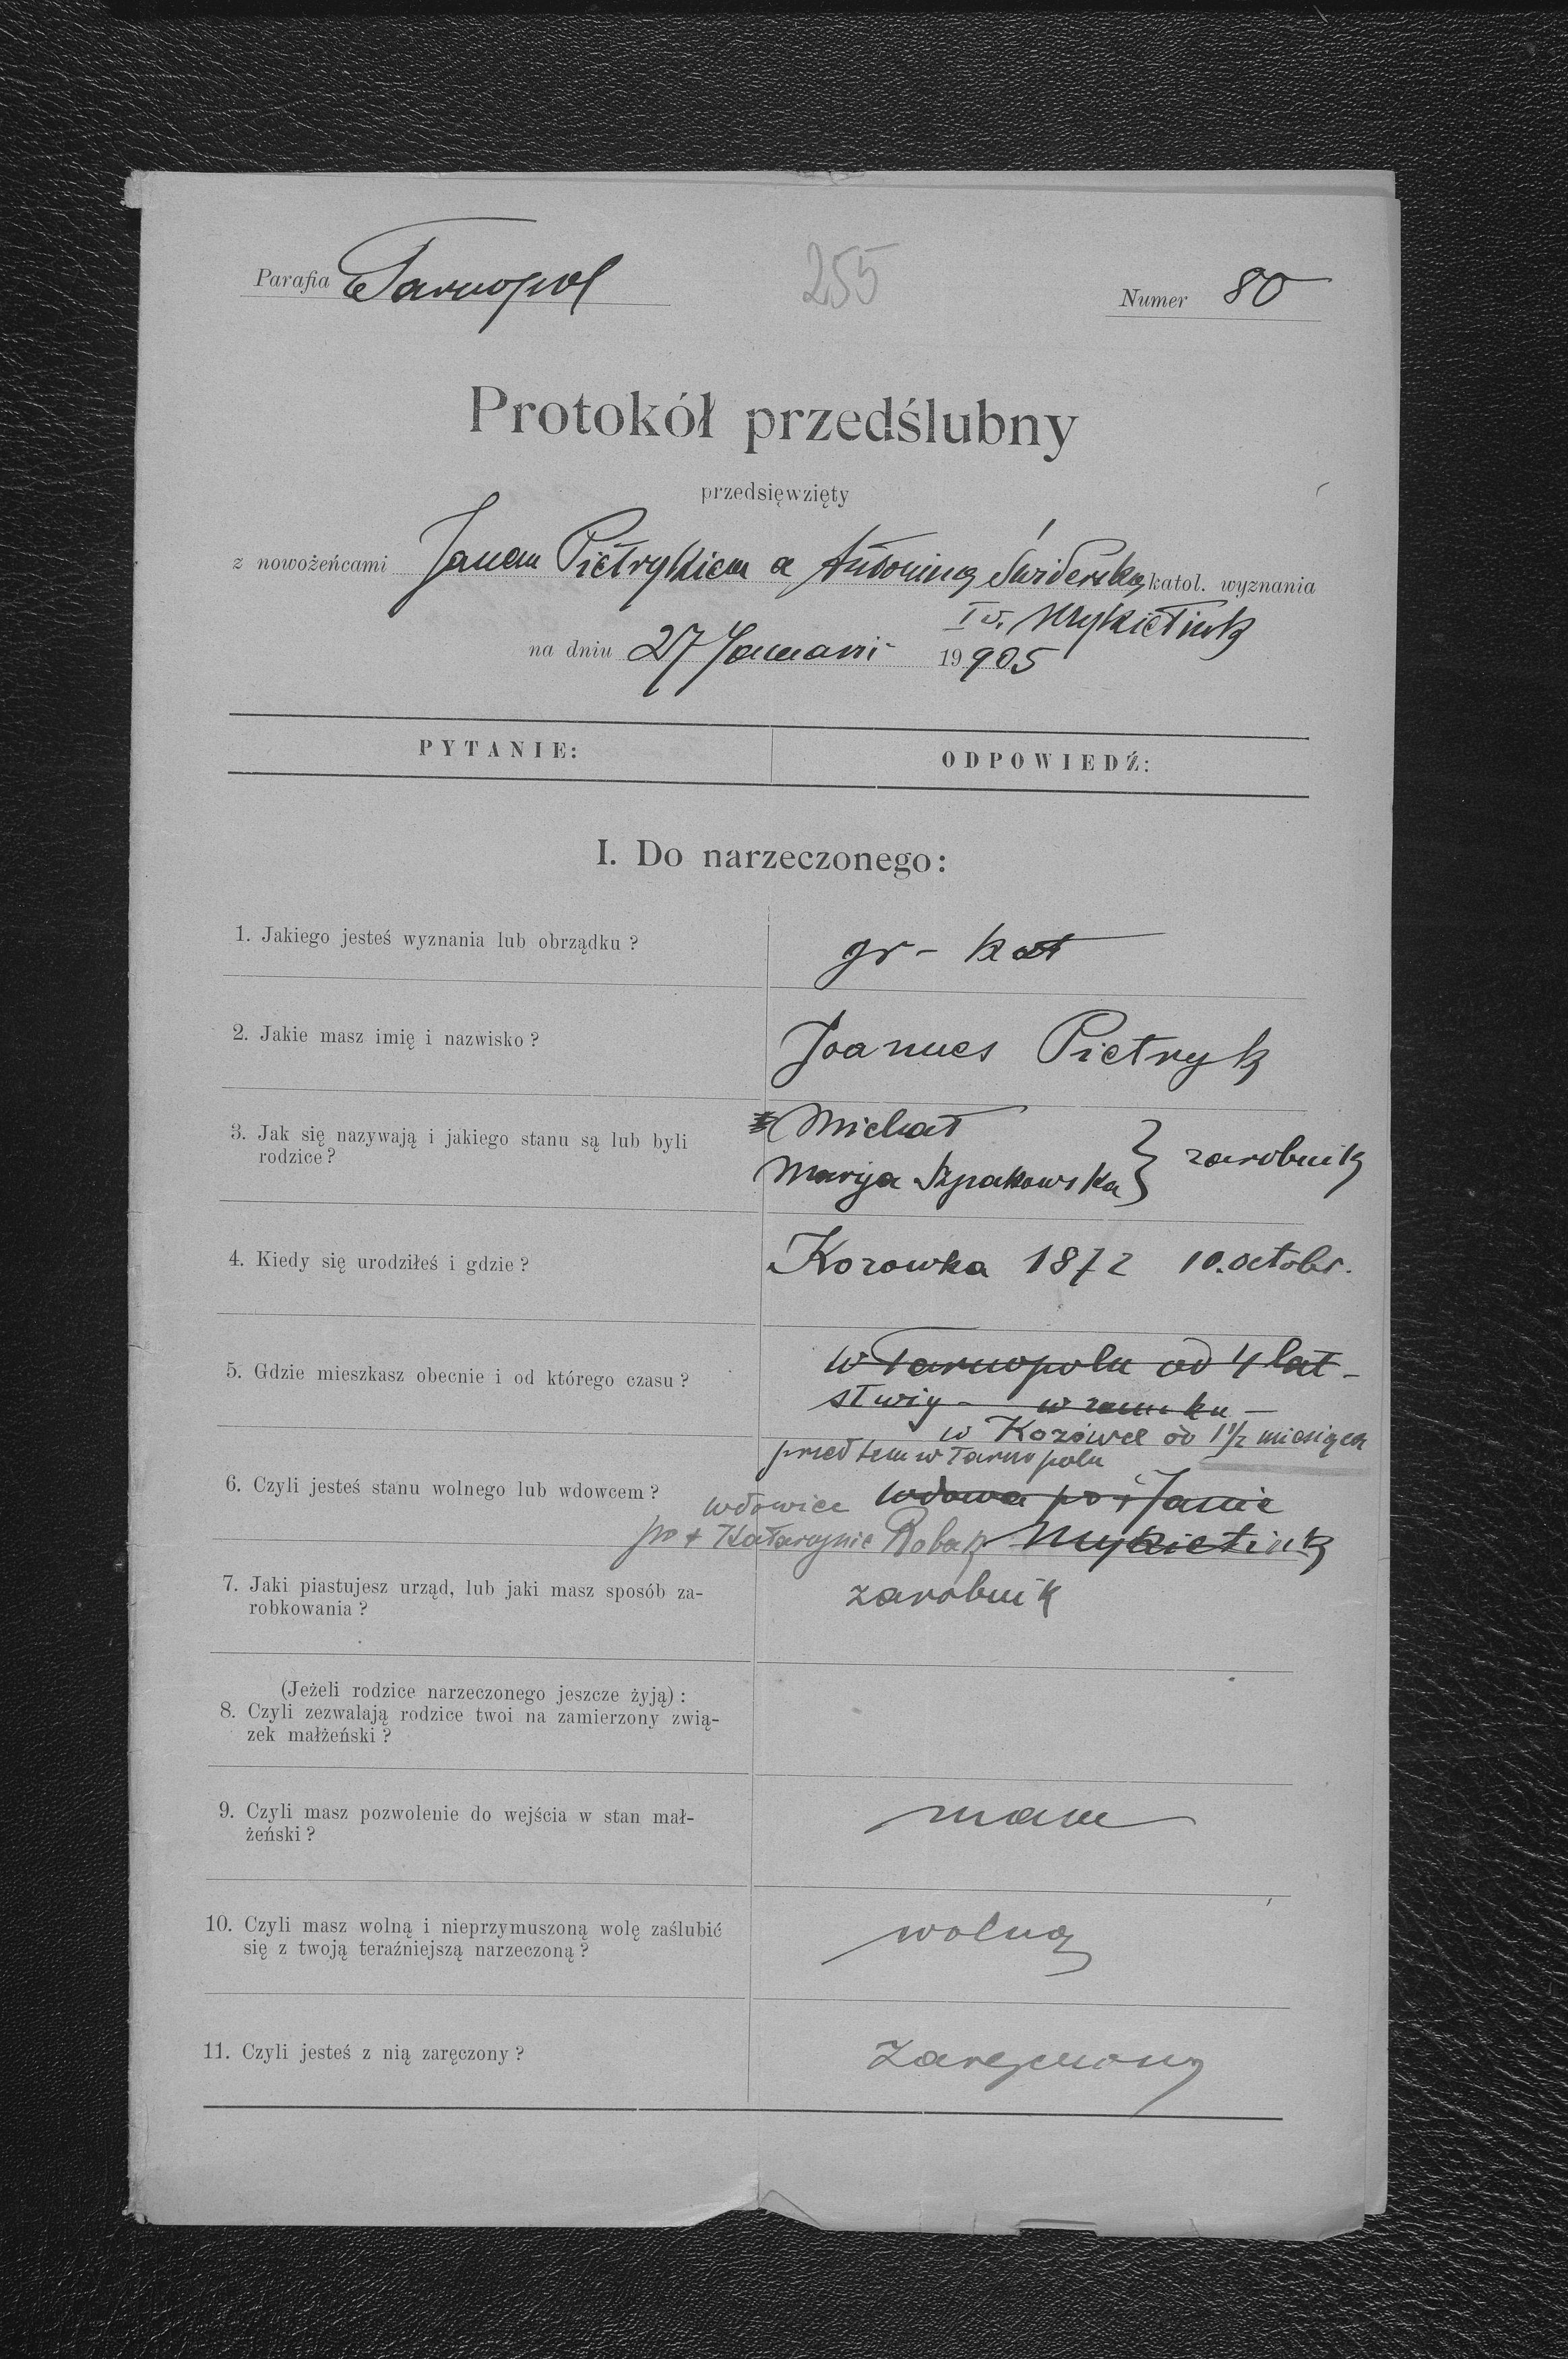 Parafia Tarnopol
255
Numer 80
Protokół przedślubny
przedsięwzięty
z nowożeńcami Janem Pietrykiem a Antoniną Świderską katol. wyznania
I v. Mykietiuk
na dniu 27 Januarii 19905
PYTANIE:
ODPOWIEDŹ:
I. Do narzeczonego:
1. Jakiego jesteś wyznania lub obrządku ?
gr - kat
2. Jakie masz imię i nazwisko ?
Joannes Pietryk
3. Jak się nazywają i jakiego stanu są lub byli
rodzice ?
Michał
Marija Szpakowska } zarobnik
4. Kiedy się urodziłeś i gdzie ?
Kozowka 1872 10. octobr.
5. Gdzie mieszkasz obecnie i od którego czasu ?
w Tarnopolu od 4 lat -
w Kozówce od 1 1/2 miesiąca
przed tem w Tarnopolu
6. Czyli jesteś stanu wolnego lub wdowcem ?
wdowiec wdowa po + Janie
po + Katarzynie Robak Mykietiuk
7. Jaki piastujesz urząd, lub jaki masz sposób za-
robkowania ?
zarobnik
(Jeżeli rodzice narzeczonego jeszcze żyją) :
8. Czyli zezwalają rodzice twoi na zamierzony zwią-
zek małżeński ?
9. Czyli masz pozwolenie do wejścia w stan mał-
żeński ?
mam
10. Czyli masz wolną i nieprzymuszoną wolę zaślubić
się z twoją teraźniejszą narzeczoną ?
wolną
11. Czyli jesteś z nią zaręczony ?
zaręczony